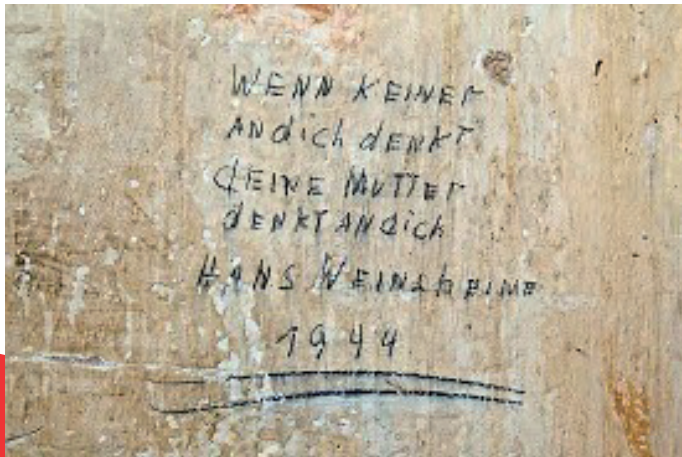 WENN KEINER
AN dich dENKT
dEINE MUTTER
dENKT AN dich
HANS WEINSHEIME
1944